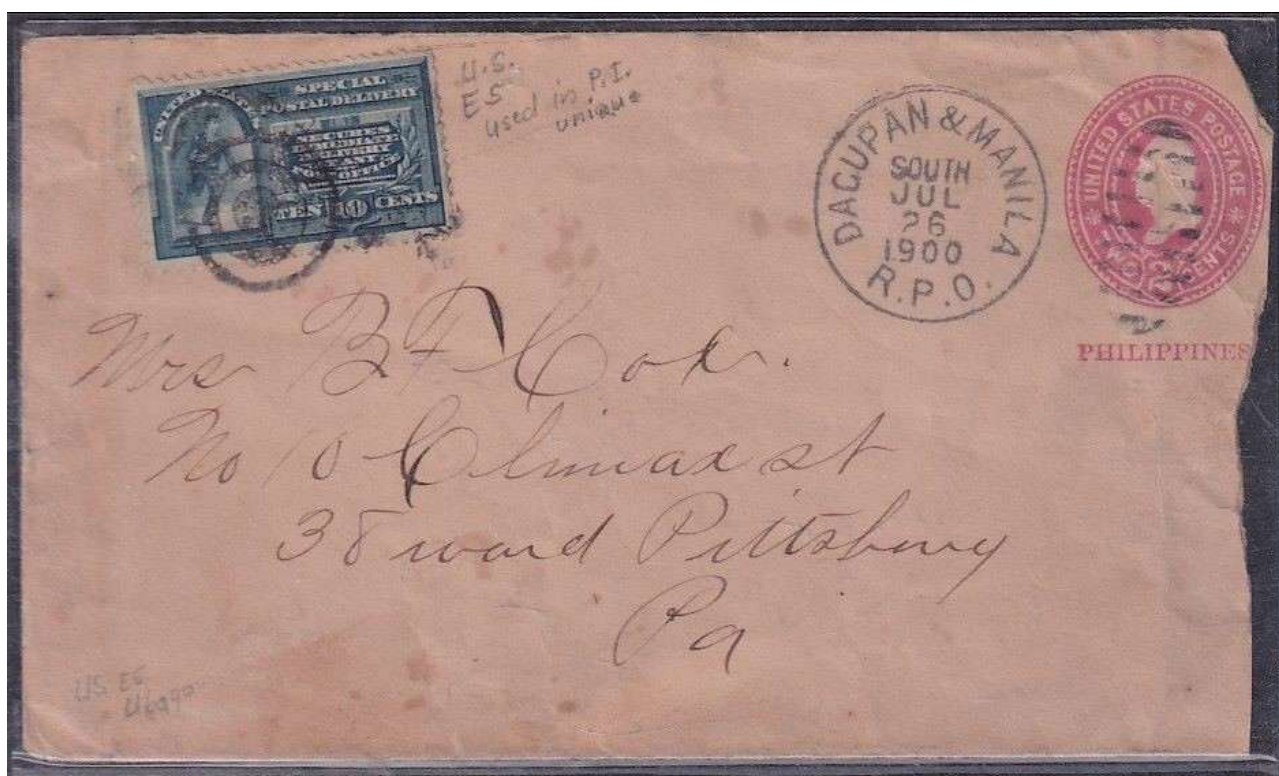 SPECIAL
POSTAL DELIVERY
SECURES
IMMEDIATE
DELIVERY
AT ANY
POST OFFICE
TEN 10 CENTS
U.S.
E5
used in P.I.
unique
DAGUPAN & MANILA
SOUTH
JUL
26
1900
R.P.O.
UNITED STATES POSTAGE
TWO CENTS
PHILIPPINES
Mrs B F Cox.
No 10 Climax st
38 ward Pittsburg
Pa
US E5